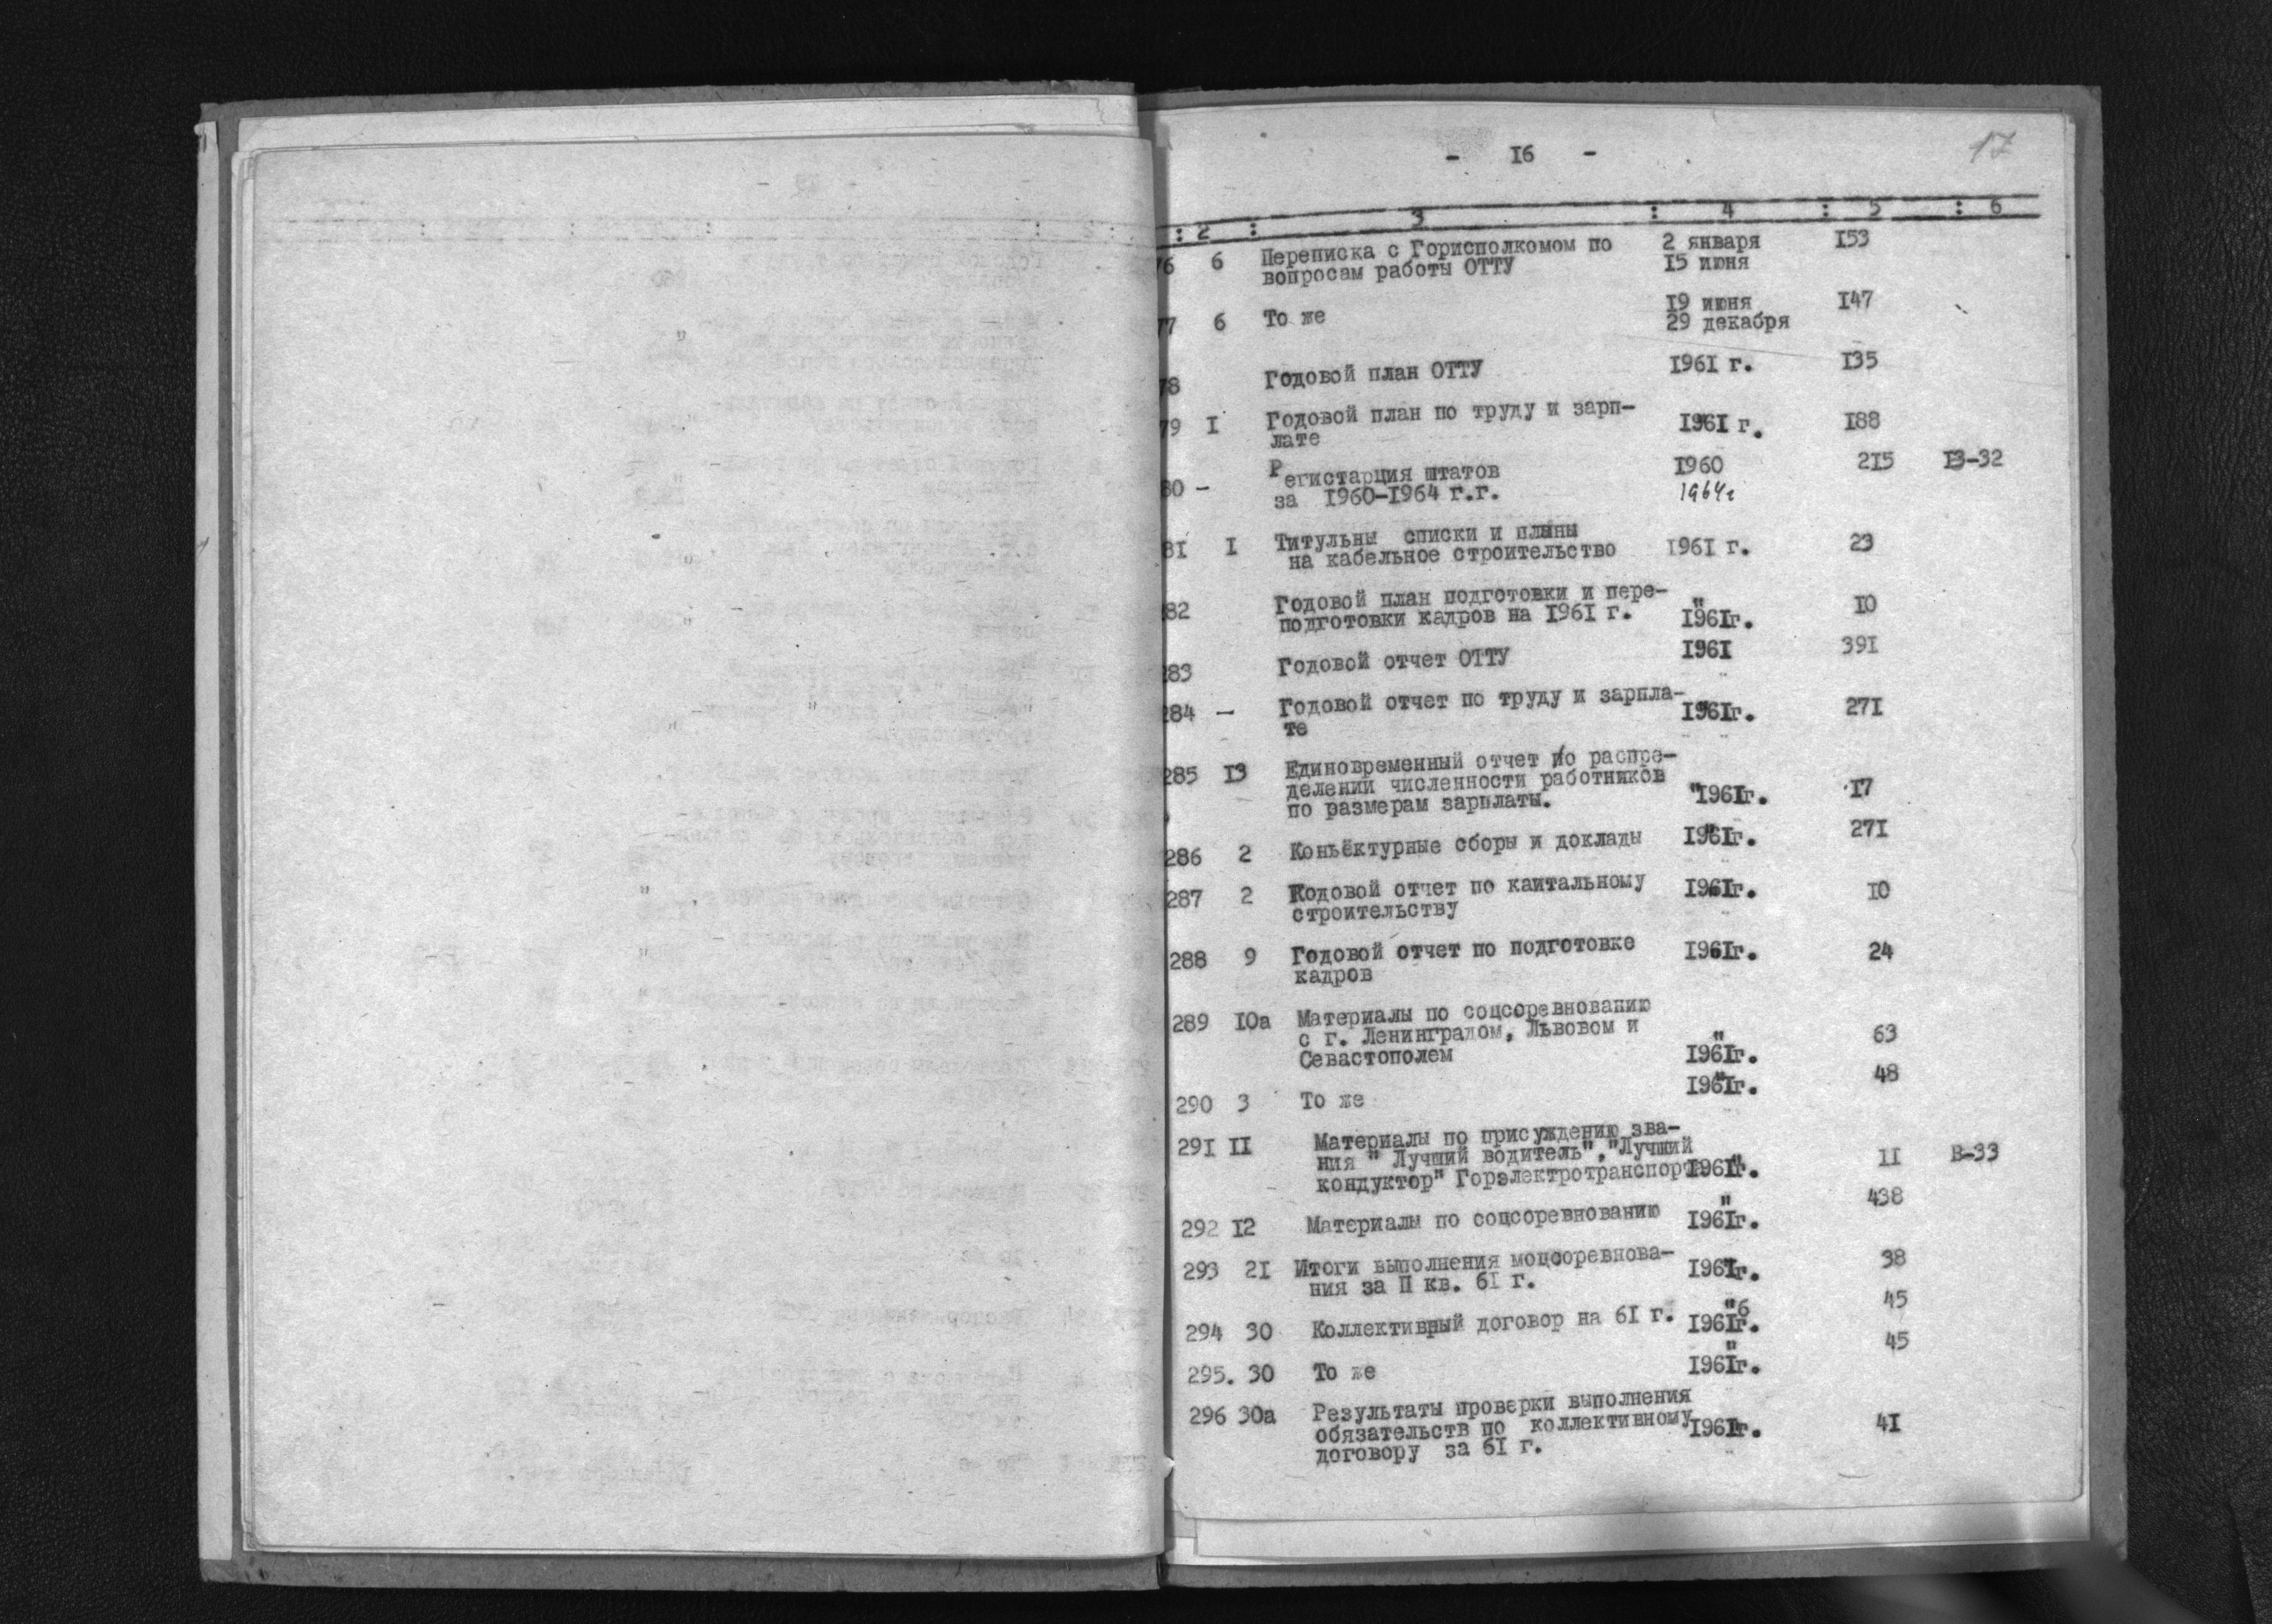 - 16 -
17
: 2 : 3 : 4 : 5 : 6
76 6 Переписка с Горисполкомом по 2 января 153
вопросам работы ОТТУ 15 июня
19 июня 147
77 6 То же 29 декабря
78 Годовой план ОТТУ 1961 г. 135
79 I Годовой план по труду и зарп- 1961 г. 188
лате
Регистарция штатов 1960 215 13-32
80 - за 1960-1964 г.г. 1964г
81 I Титульны списки и планы
на кабельное строительство 1961 г. 23
282 Годовой план подготовки и пере- " 10
подготовки кадров на 1961 г. 1961г.
283 Годовой отчет ОТТУ 1961 391
284 - Годовой отчет по труду и зарпла- 1961г. 271
те
285 13 Единовременный отчет по распре-
делении численности работников
по размерам зарплаты. "1961г. 17
286 2 Коньёктурные сборы и доклады 1961г. 271
287 2 Годовой отчет по каитальному 1961г. 10
строительству
288 9 Годовой отчет по подготовке 1961г. 24
кадров
289 10а Материалы по соцсоревнованию
с г. Ленинградом, Львовом и " 63
Севастополем 1961г.
290 3 То же 1961г. 48
291 II Материалы по присуждению зва-
ния " Лучший водитель","Лучший
кондуктор" Горэлектротранспорта 1961г. II В-33
292 12 Материалы по соцсоревнованию " 1961г. 438
293 21 Итоги выполнения моцсоревнова- 1961г. 38
ния за П кв. 61 г.
294 30 Коллективный договор на 61 г. "6 1961г. 45
295. 30 То же " 1961г. 45
296 30а Результаты проверки выполнения
обязательств по коллективному 1961г. 41
договору за 61 г.